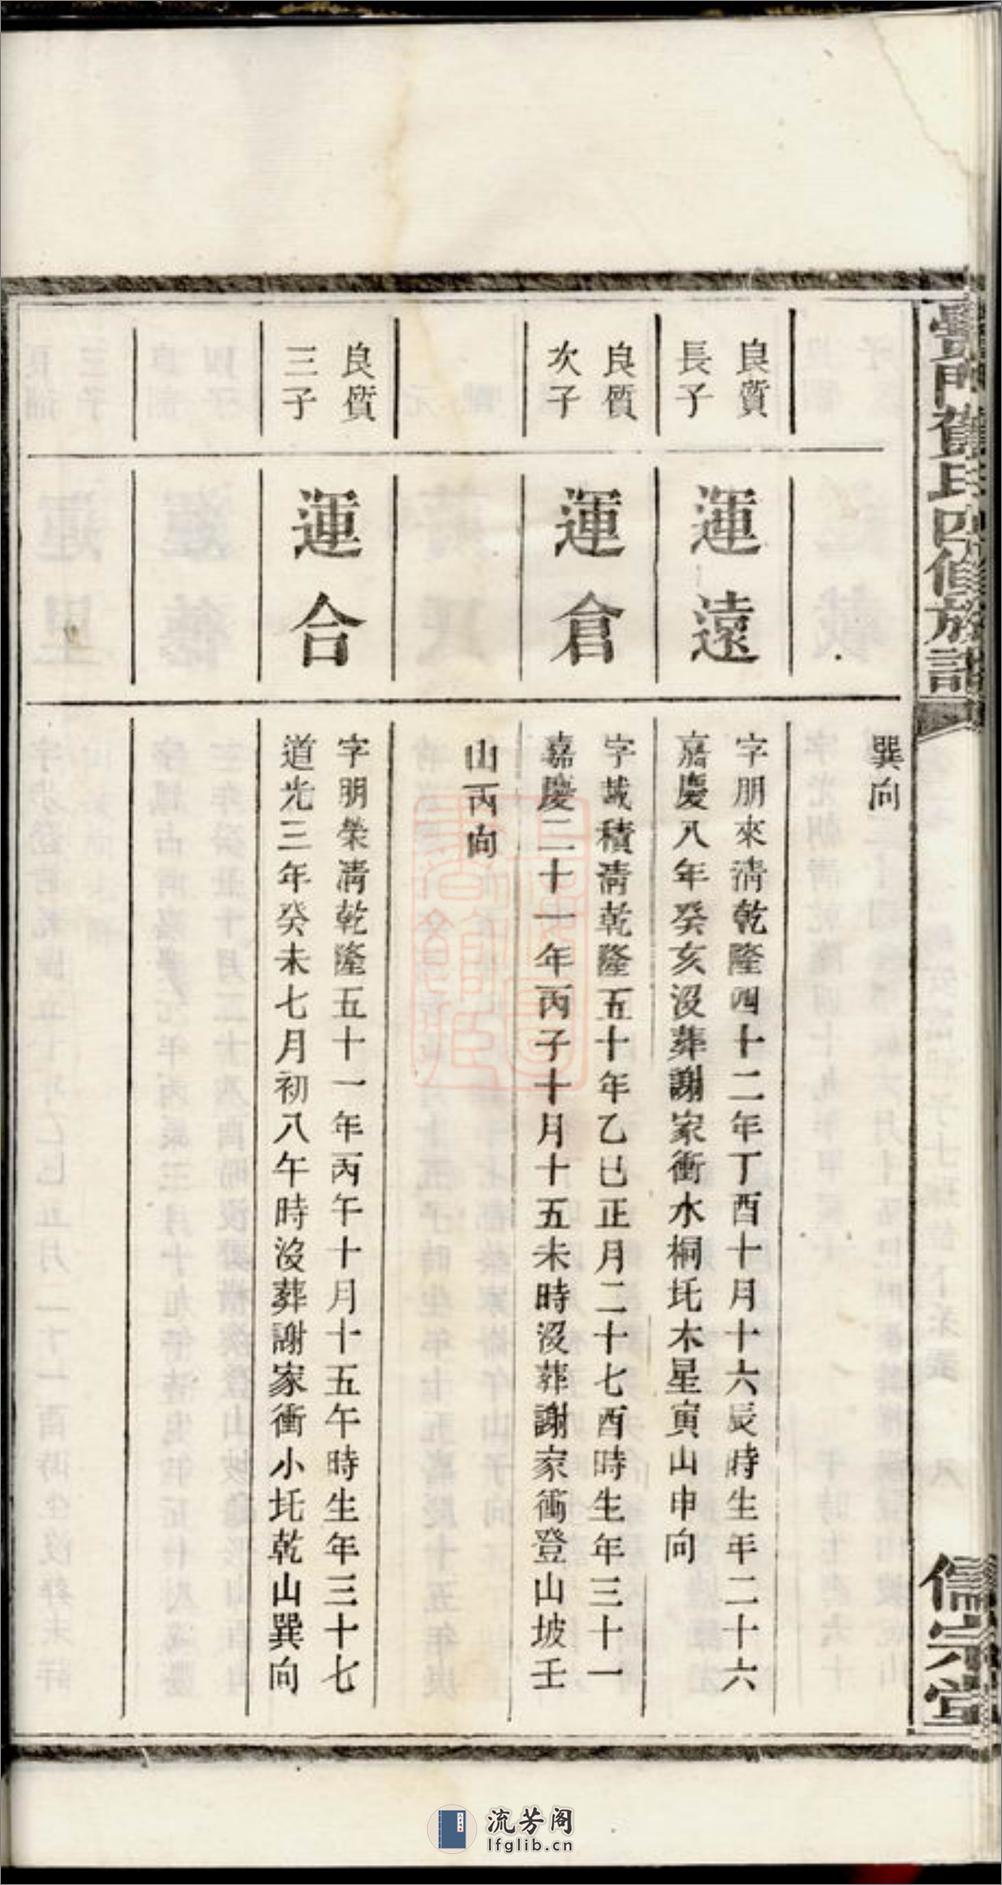 舊氏四修族譜
儒宗堂
巽向
良質
長子
運遠
字朋來清乾隆四十二年丁酉十月十六辰時生年二十六
嘉慶八年癸亥沒葬謝家衝水桐圫木星寅山申向
良質
次子
運倉
字載積清乾隆五十年乙巳正月二十七酉時生年三十一
嘉慶二十一年丙子十月十五未時沒葬謝家衝登山坡壬
山丙向
良質
三子
運合
字朋榮清乾隆五十一年丙午十月十五午時生年三十七
道光三年癸未七月初八午時沒葬謝家衝小圫乾山巽向
流芳阁
lfglib.cn